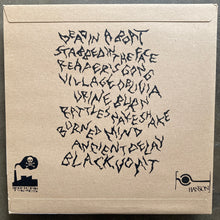 DEAD IN A BOAT
STABBED IN THE FACE
REAPER'S GONG
VILLAGE OBLIVIA
URINE BURN
RATTLESNAKE SHAKE
BURNED MIND
ANCIENT DELAY
BLACK VOMIT
HANSON